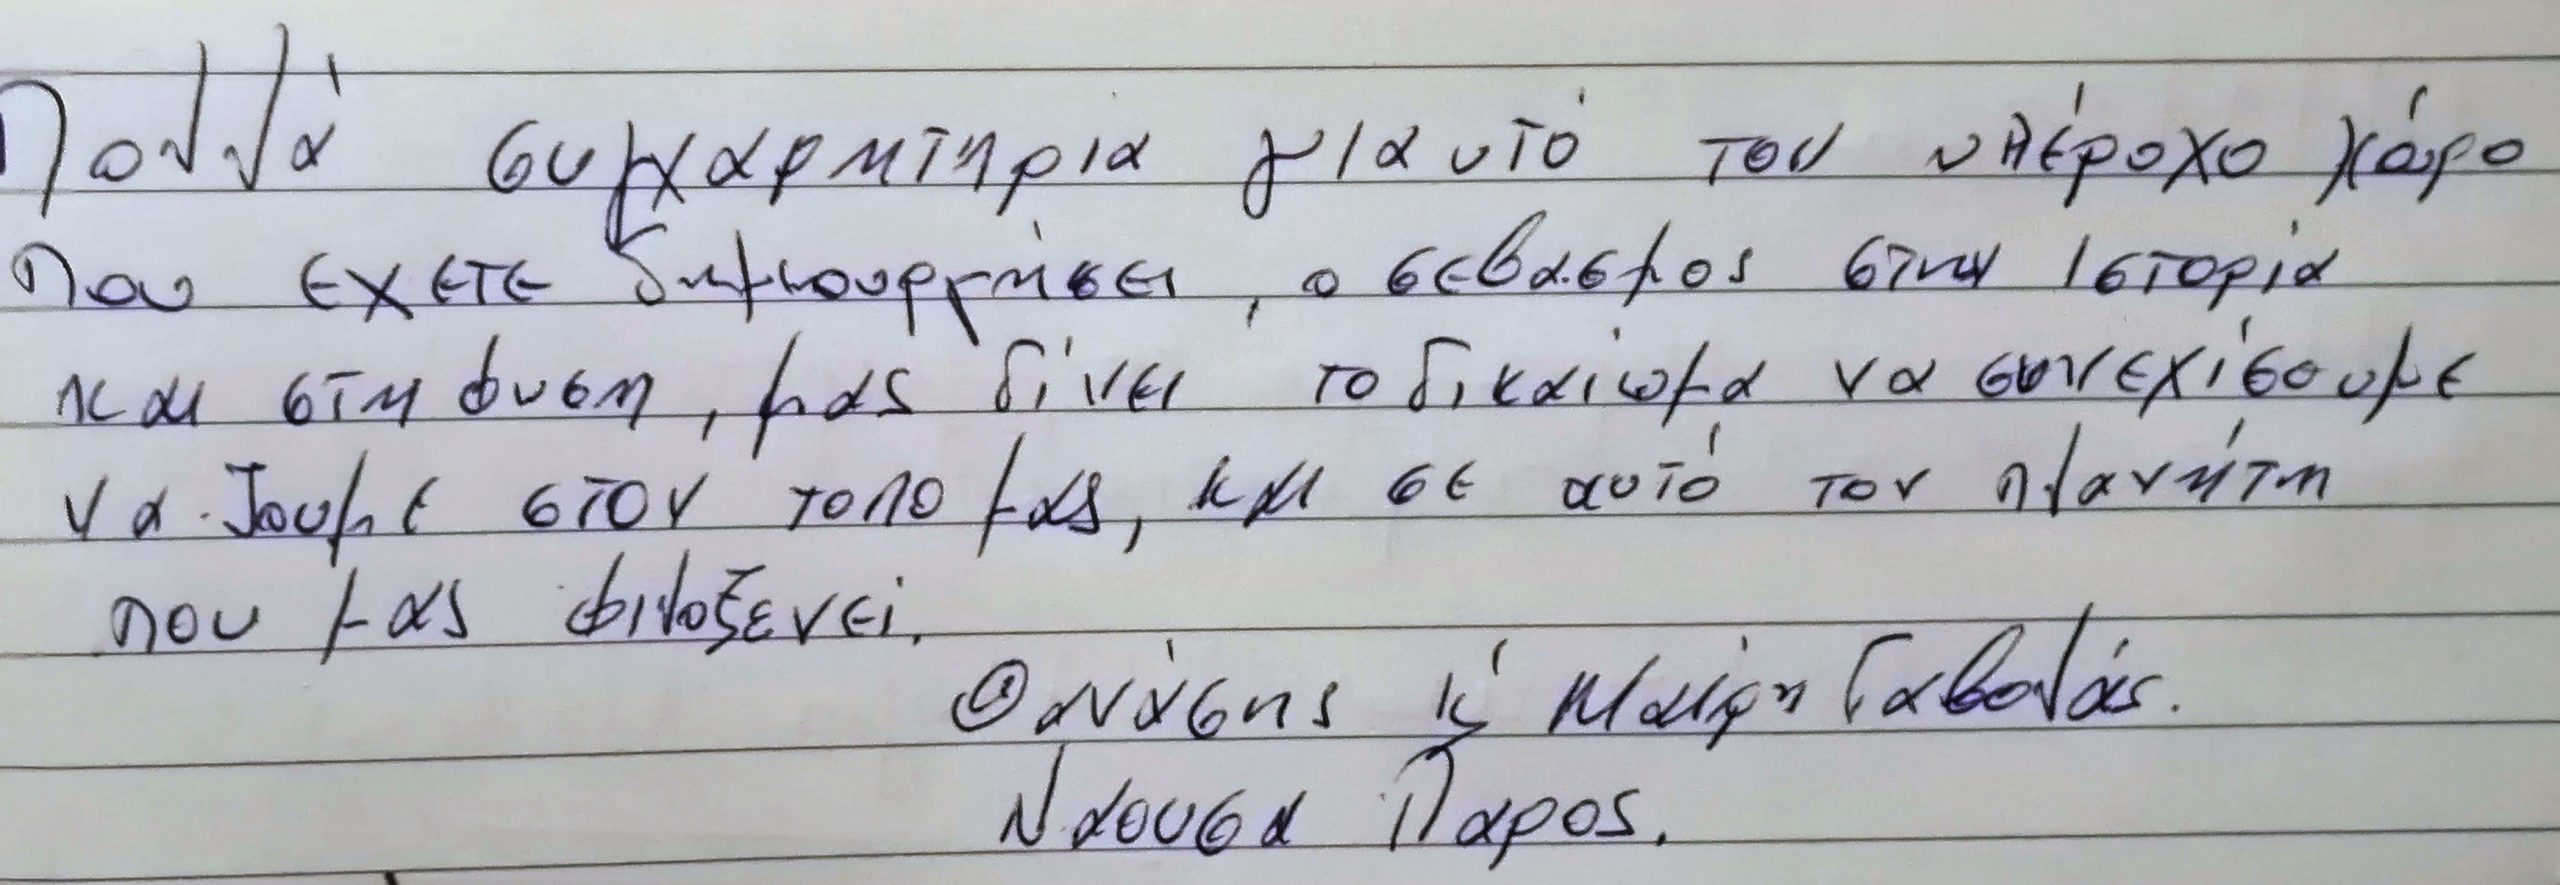 Πολλά συγχαρητήρια γι αυτό τον υπέροχο χώρο
που εχετε δημιουργήσει, ο σεβασμος στην Ιστορία
και στη φυση, μας δίνει το δικαίωμα να συνεχίσουμε
να ζουμε στον τοπο μας, και σε αυτό τον πλανήτη
που μας φιλοξενεί.
Θανάσης κ' Μαίρη Γαβαλάς.
Ναουσα Παρος.